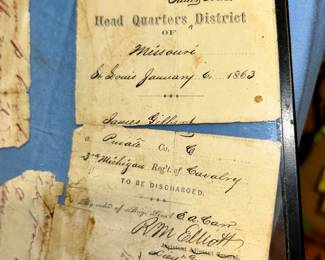 Head Quarters District
OF
Missouri
St Louis January 6 1863
James Gilbert
a Private Co. C
3rd Michigan Reg't. of Cavalry
TO BE DISCHARGED.
By order of Brig. Genl E. A. Carr
R M Elliott